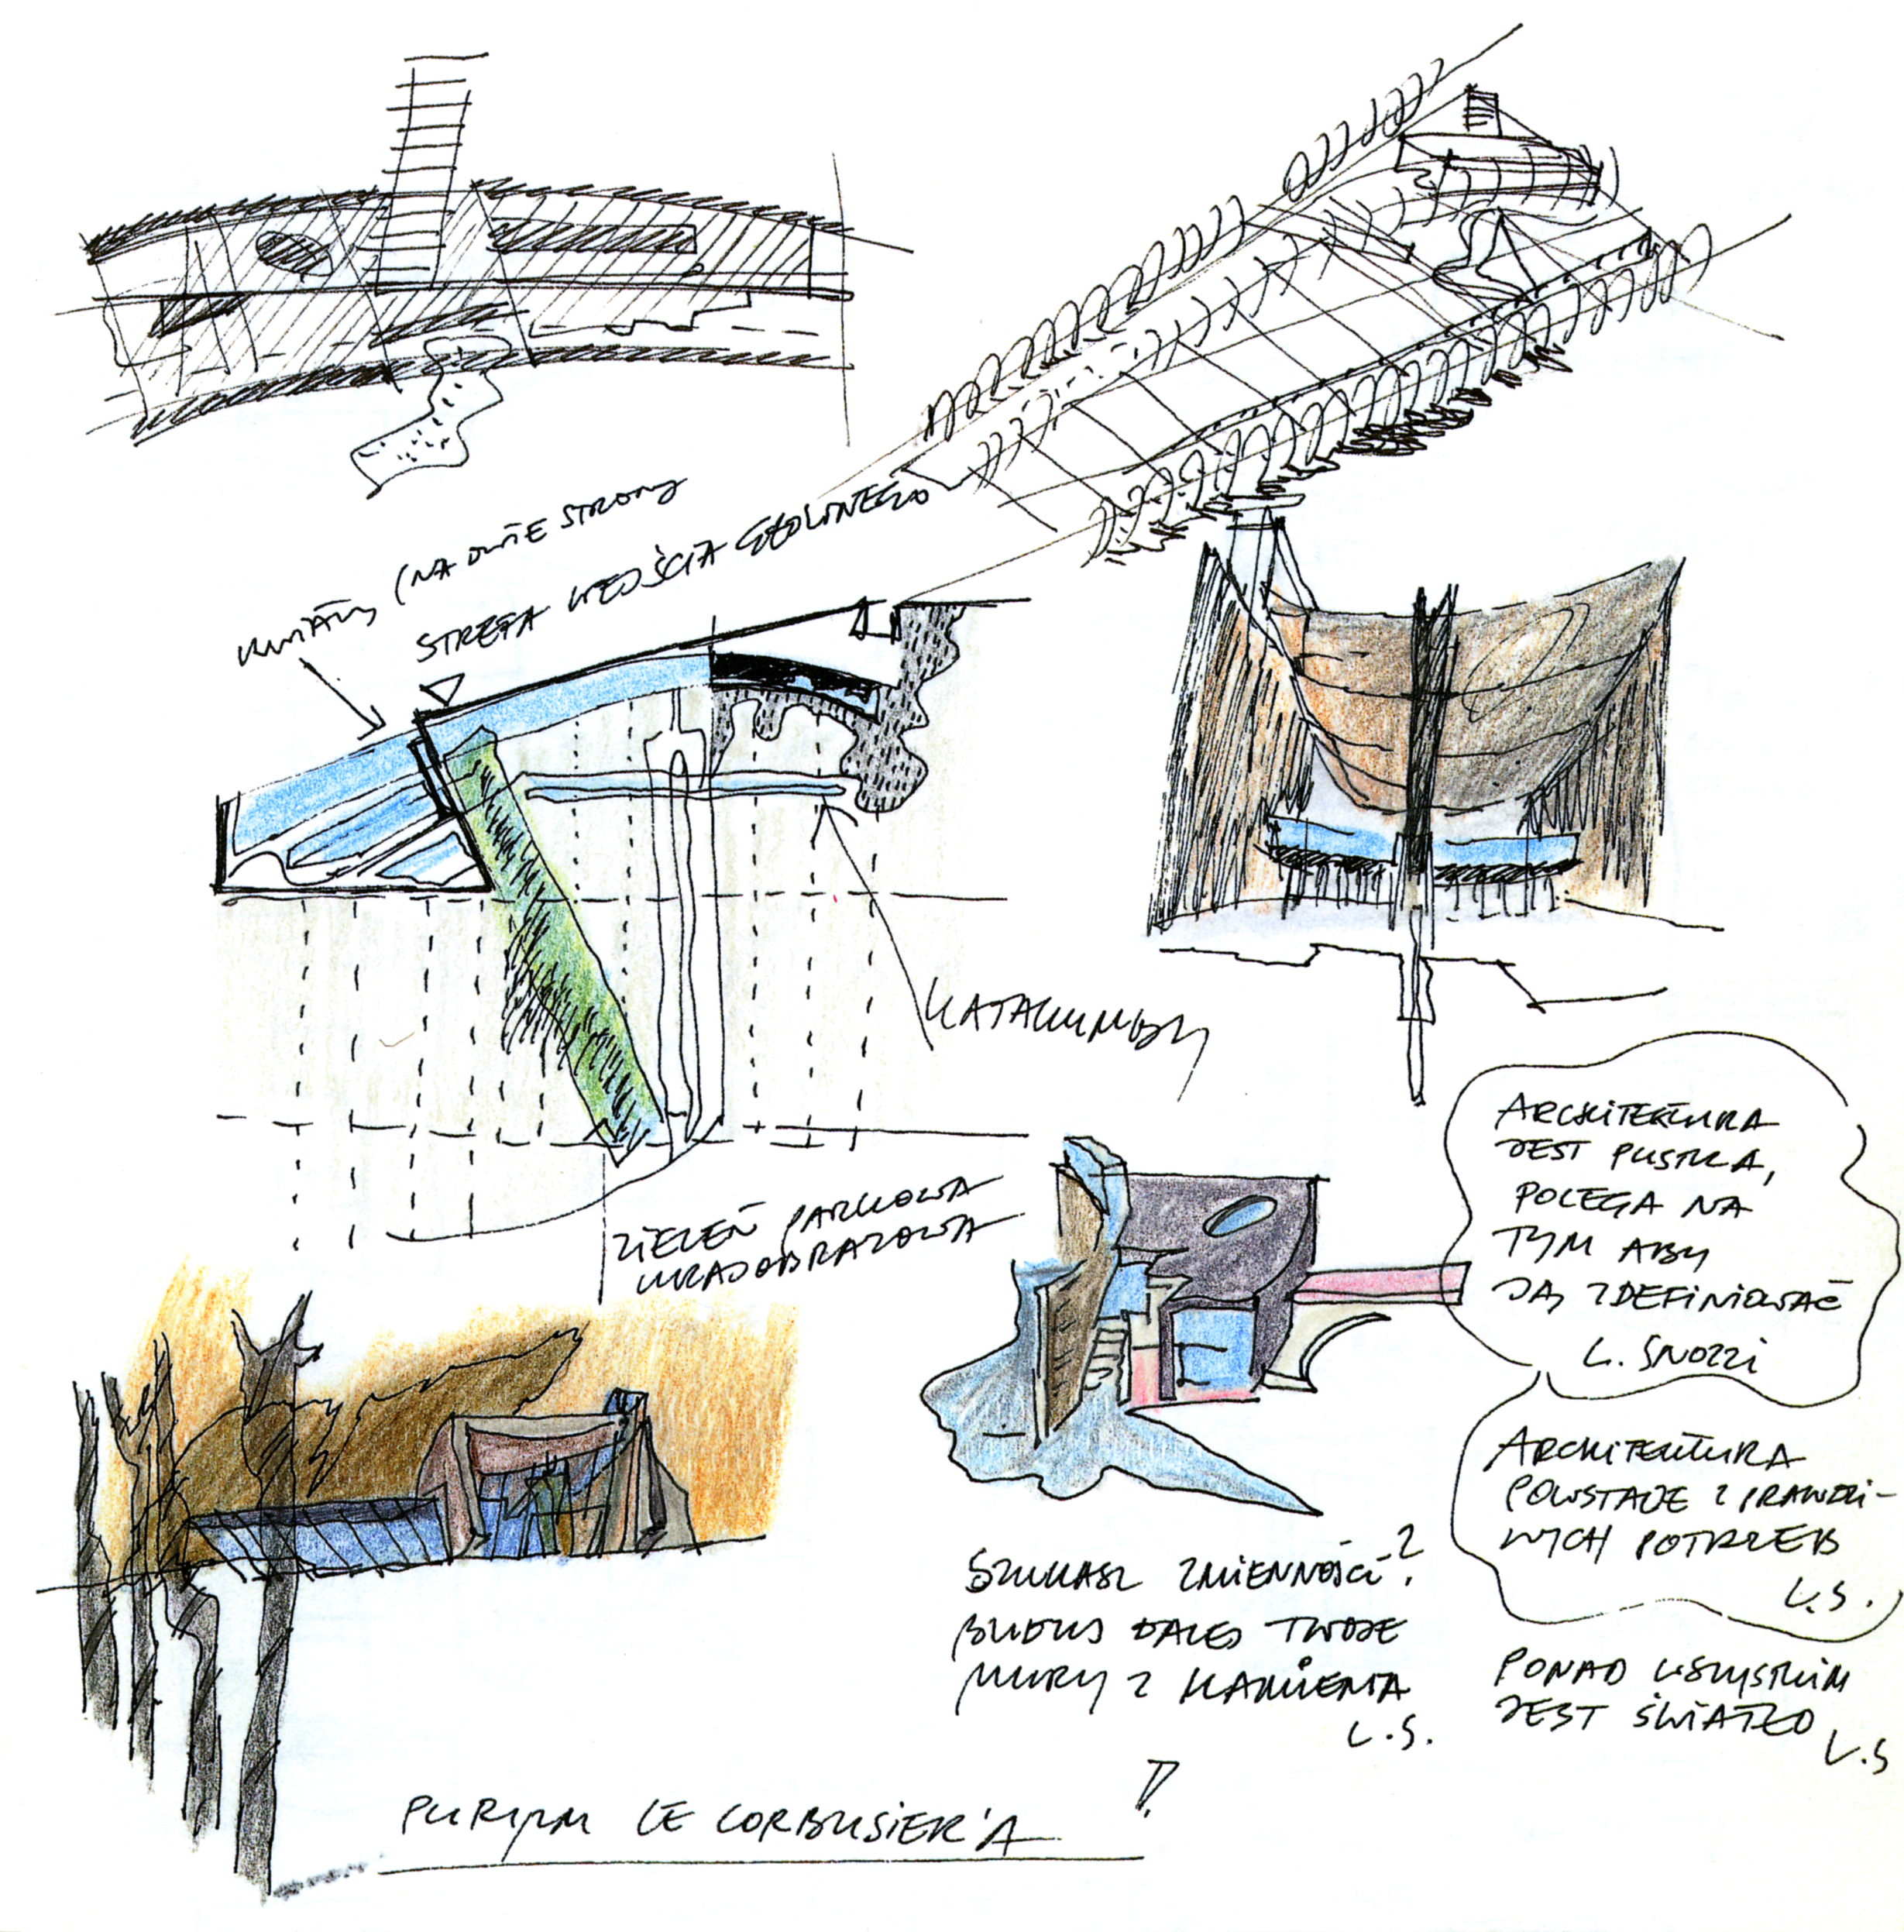 KWIATY (NA DWIE STRONY
STREFA WEJŚCIA GŁÓWNEGO
KATAKUMBY
ZIELEŃ PARKOWA
KRAJOBRAZOWA
ARCHITEKTURA
JEST PUSTKĄ,
POLEGA NA
TYM ABY
JĄ ZDEFINIOWAĆ
L. SNOZZI
ARCHITEKTURA
POWSTAJE Z PRAWDZI-
WYCH POTRZEB
L.S.
SZUKASZ ZMIENNOŚCI?
BUDUJ DALEJ TWOJE
MURY Z KAMIENIA
L.S.
PONAD WSZYSTKIM
JEST ŚWIATŁO
L.S
PURYZM LE CORBUSIER'A !